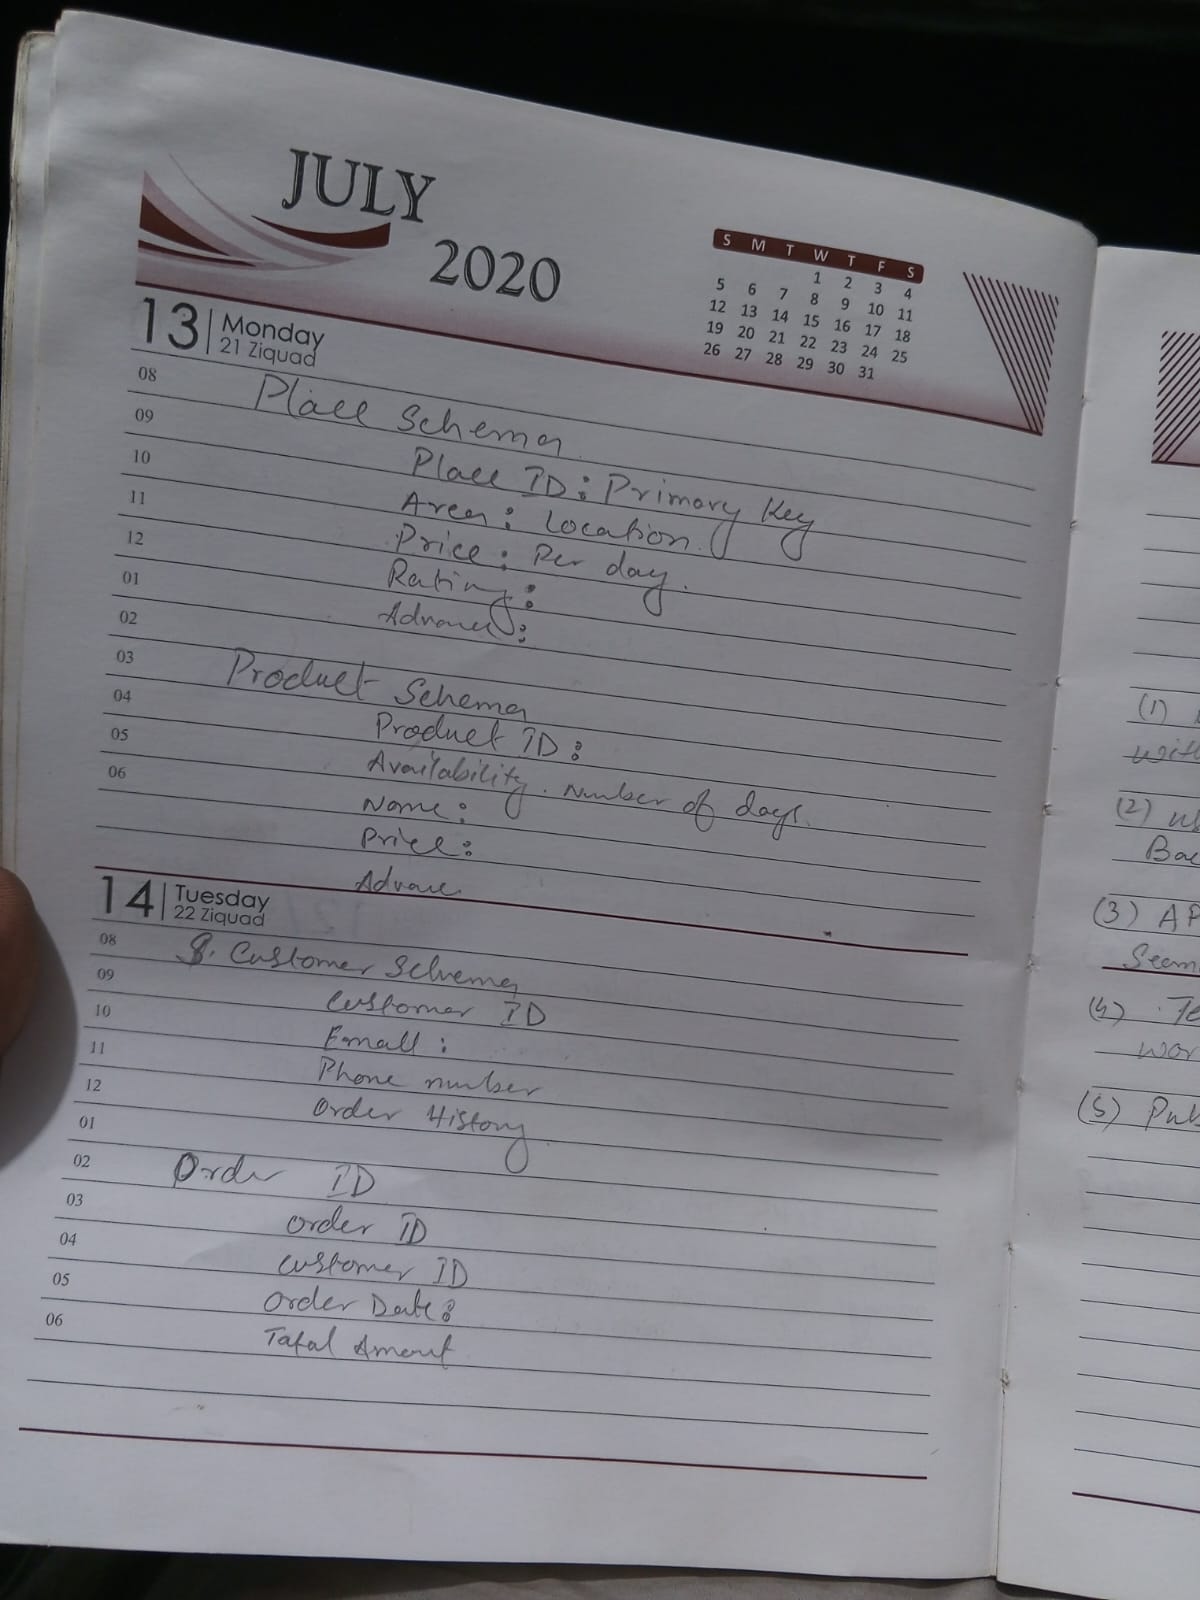 JULY
2020
S M T W T F S
1 2 3 4
5 6 7 8 9 10 11
12 13 14 15 16 17 18
19 20 21 22 23 24 25
26 27 28 29 30 31
13 Monday
21 Ziquad
08 Place Schema
09 Place ID: Primary Key
10 Area: Location.
11 Price: Per day.
12 Rating:
01 Advance:
02
03 Product Schema
04 Product ID:
05 Availability. Number of days.
06 Name:
Price:
Advance
14 Tuesday
22 Ziquad
08 Customer Schema
09 Customer ID
10 Email:
11 Phone number
12 Order History
01
02 Order ID
03 Order ID
04 Customer ID
05 Order Date:
06 Total Amount
(1)
with
(2)
(3) AP
Seem
(4) Te
wor
(5) Pub